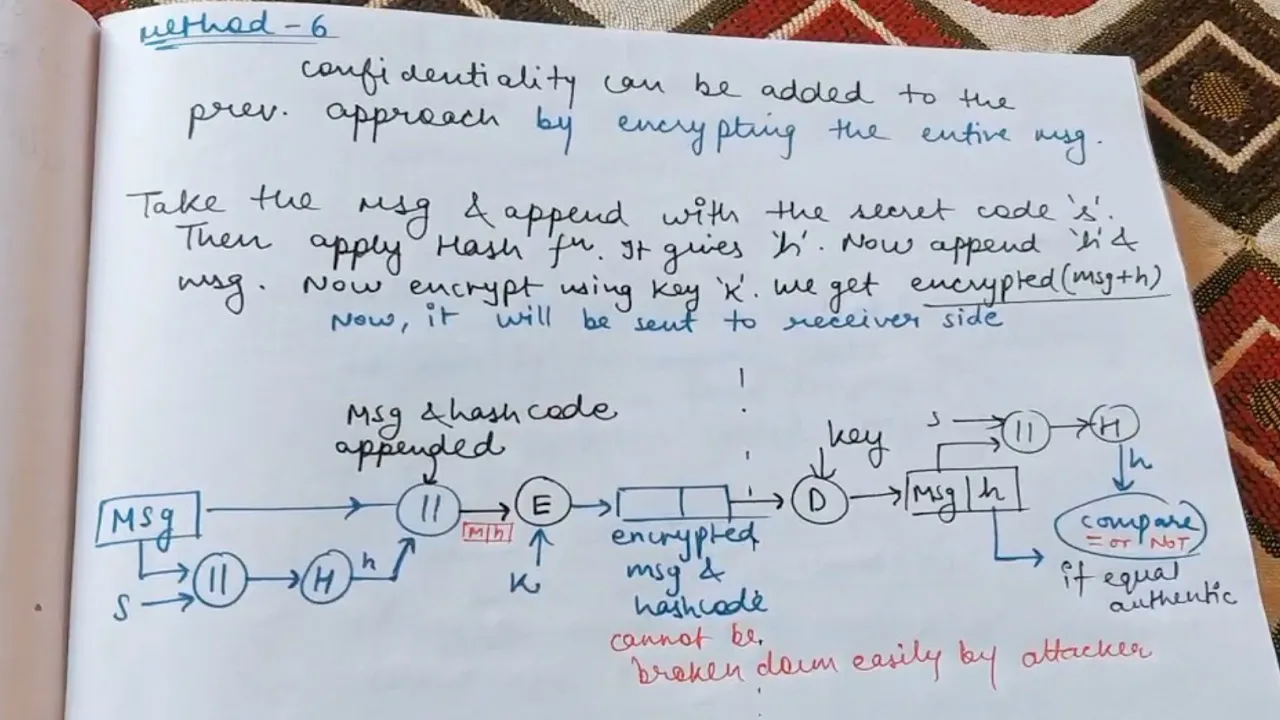 Method - 6
confidentiality can be added to the
prev. approach by encrypting the entire msg.
Take the Msg & append with the secret code 's'.
Then apply Hash fn. It gives 'h'. Now append 'h' &
msg. Now encrypt using key 'K'. we get encrypted(msg+h)
Now, it will be sent to receiver side
Msg & hash code
appended
key
S
||
H
h
Msg
||
M|h
E
D
Msg | h
compare
= or NOT
S
||
H
h
K
encrypted
msg &
hashcode
if equal
authentic
cannot be
broken down easily by attacker